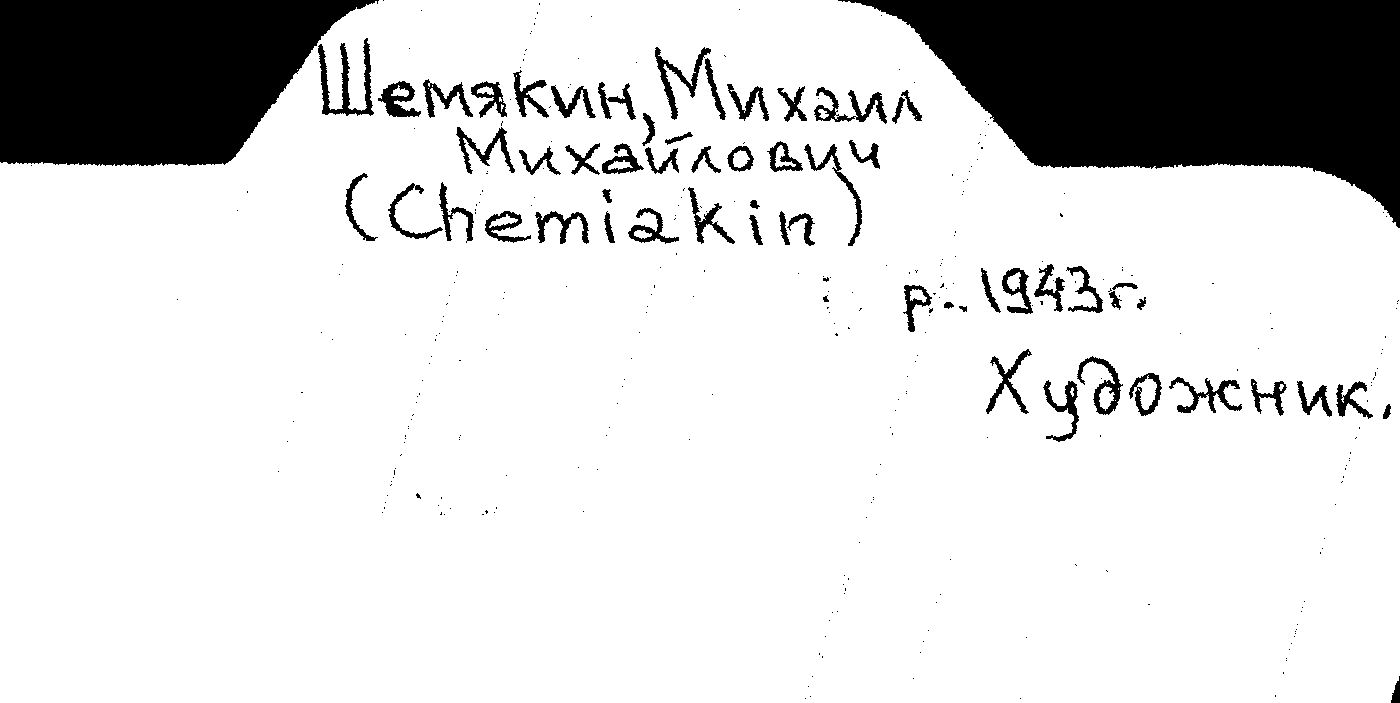 Шемякин, Михаил
Михайлович
(Chemiakin)
р. 1943г.
Художник.